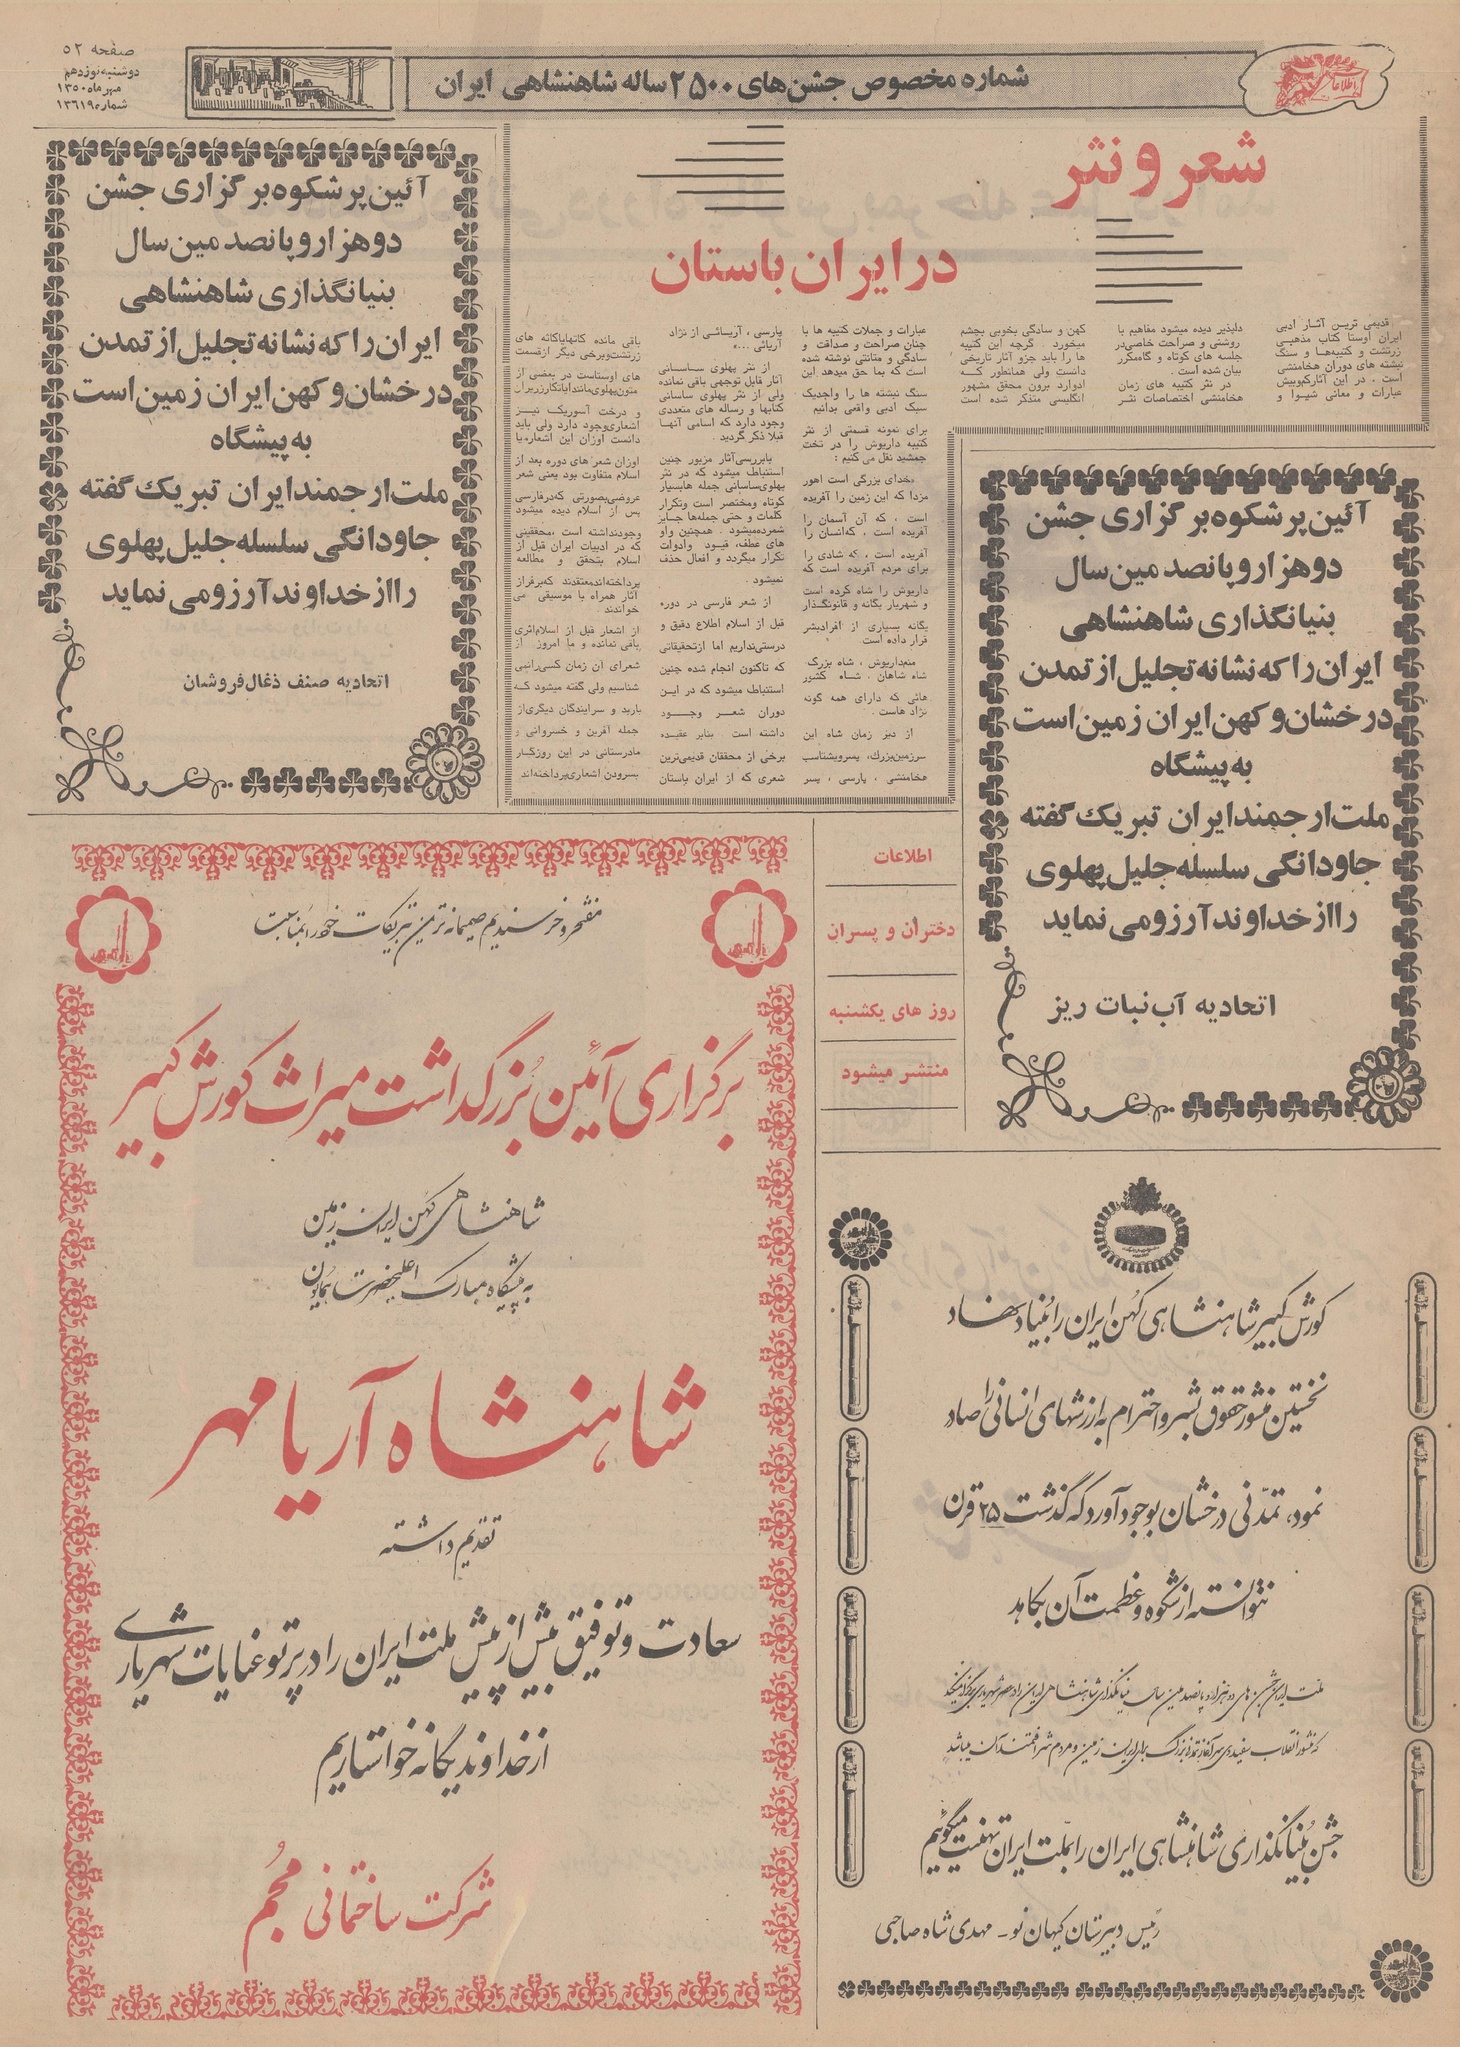 صفحه ۵۲
دوشنبه نوزدهم
مهر ماه ۱۳۵۰
شماره ۱۳۶۱۹
شماره مخصوص جشن های ۲۵۰۰ ساله شاهنشاهی ایران
اطلاعات
شعر و نثر
در ایران باستان
قدیمی ترین آثار ادبی
ایران اوستا کتاب مذهبی
زرتشت و کتیبه‌ها و سنگ
نبشته های دوران هخامنشی
است . در این آثار کم‌وبیش
عبارات و معانی شیوا و
دلپذیر دیده میشود مفاهیم با
روشنی و صراحت خاصی در
جلسه های کوتاه و گاه‌مکرر
بیان شده است .
در نثر کتیبه های زمان
هخامنشی اختصاصات نثر
کهن و سادگی بخوبی بچشم
میخورد . گرچه این کتیبه
ها را باید جزو آثار تاریخی
دانست ولی همانطور که
ادوارد برون محقق مشهور
انگلیسی متذکر شده است
عبارات و جملات کتیبه ها با
چنان صراحت و صداقت و
سادگی و متانتی نوشته شده
است که بما حق میدهد این
سنگ نبشته ها را واجدیک
سبک ادبی واقعی بدانیم
برای نمونه قسمتی از نثر
کتیبه داریوش را در تخت
جمشید نقل می کنیم :
«خدای بزرگی است اهور
مزدا که این زمین را آفریده
است ، که آن آسمان را
آفریده است ، که‌انسان را
آفریده است ، که شادی را
برای مردم آفریده است که
داریوش را شاه کرده است
و شهریار یگانه و قانونگذار
یگانه بسیاری از افرادبشر
قرار داده است
منم‌داریوش ، شاه بزرگ
شاه شاهان ، شاه کشور
هائی که دارای همه گونه
نژاد هاست .
از دیر زمان شاه این
سرزمین‌بزرك، پسرویشتاسب
هخامنشی ، پارسی ، پسر
پارسی ، آریائی از نژاد
آریائی ...»
از نثر پهلوی ساسانی
آثار قابل توجهی باقی نمانده
ولی از نثر پهلوی ساسانی
کتابها و رساله های متعددی
وجود دارد که اسامی آنها
قبلا ذکر گردید .
بابررسی‌آثار مزبور چنین
استنباط میشود که در نثر
پهلوی‌ساسانی جمله هابسیار
کوتاه ومختصر است وتکرار
کلمات و حتی جمله‌ها جایز
شمرده‌میشود . همچنین واو
های عطف، قیود وادوات
تکرار میگردد و افعال حذف
نمیشود .
از شعر فارسی در دوره
قبل از اسلام اطلاع دقیق و
درستی‌نداریم اما ازتحقیقاتی
که تاکنون انجام شده چنین
استنباط میشود که در این
دوران شعر وجود
داشته است بنابر عقیده
برخی از محققان قدیمی‌ترین
شعری که از ایران باستان
باقی مانده گاتهایاگاثه های
زرتشت‌وبرخی دیگر ازقسمت
های اوستاست در بعضی از
متون‌پهلوی‌مانندایاتکارزریران
و درخت آسوریک نیز
اشعاری‌وجود دارد ولی باید
دانست اوزان این اشعاربا
اوزان شعر های دوره بعد از
اسلام متفاوت بود یعنی شعر
عروضی‌بصورتی که‌درفارسی
پس از اسلام دیده میشود
وجودنداشته است .محققینی
که در ادبیات ایران قبل از
اسلام بتحقق و مطالعه
پرداخته‌اندمعتقدند که‌برفراز
آثار همراه با موسیقی می
خواندند
از اشعار قبل از اسلام‌اثری
باقی نمانده و ما امروز از
شعرای آن زمان کسی‌رانمی
شناسیم ولی گفته میشود که
باربد و سرایندگان دیگری‌از
جمله آفرین و خسروانی و
مادرستانی در این روزگار
بسرودن اشعاری‌پرداخته‌اند
آئین پر شکوه بر گزاری جشن
دو هزار و پانصد مین سال
بنیانگذاری شاهنشاهی
ایران را که نشانه تجلیل از تمدن
درخشان و کهن ایران زمین است
به پیشگاه
ملت ارجمند ایران تبریك گفته
جاودانگی سلسله جلیل پهلوی
را از خداوند آرزو می نماید
اتحادیه صنف ذغال فروشان
آئین پر شکوه بر گزاری جشن
دو هزار و پانصد مین سال
بنیانگذاری شاهنشاهی
ایران را که نشانه تجلیل از تمدن
درخشان و کهن ایران زمین است
به پیشگاه
ملت ارجمند ایران تبریك گفته
جاودانگی سلسله جلیل پهلوی
را از خداوند آرزو می نماید
اتحادیه آب نبات ریز
اطلاعات
دختران و پسران
روز های یکشنبه
منتشر میشود
مفتخر و خرسندیم صمیمانه ترین تبریکات خود را بمناسبت
برگزاری آئین بزرگداشت میراث کورش کبیر
شاهنشاهی کهن ایران زمین
به پیشگاه مبارک اعلیحضرت همایون
شاهنشاه آریامهر
تقدیم داشته
سعادت و توفیق بیش از پیش ملت ایران را در پرتو عنایات شهریاری
از خداوند یگانه خواستاریم
شرکت ساختمانی محجم
کورش کبیر شاهنشاهی کهن ایران را بنیاد نهاد
نخستین منشور حقوق بشر و احترام به ارزشهای انسانی را صادر
نمود، تمدنی درخشان بوجود آورد که گذشت ۲۵ قرن
نتوانسته از شکوه و عظمت آن بکاهد
ملت ایران جشن های دو هزار و پانصدمین سال بنیانگذاری شاهنشاهی ایران را در عصر شهریاری برگزار میکند
که منشور انقلاب سفیدش سرآغاز تمدن بزرگ برای ایران زمین و مردم شرافتمند آن میباشد
جشن بنیانگذاری شاهنشاهی ایران را بملت ایران تهنیت میگوئیم
رئیس دبیرستان کیهان نو - مهدی شاه صاحبی